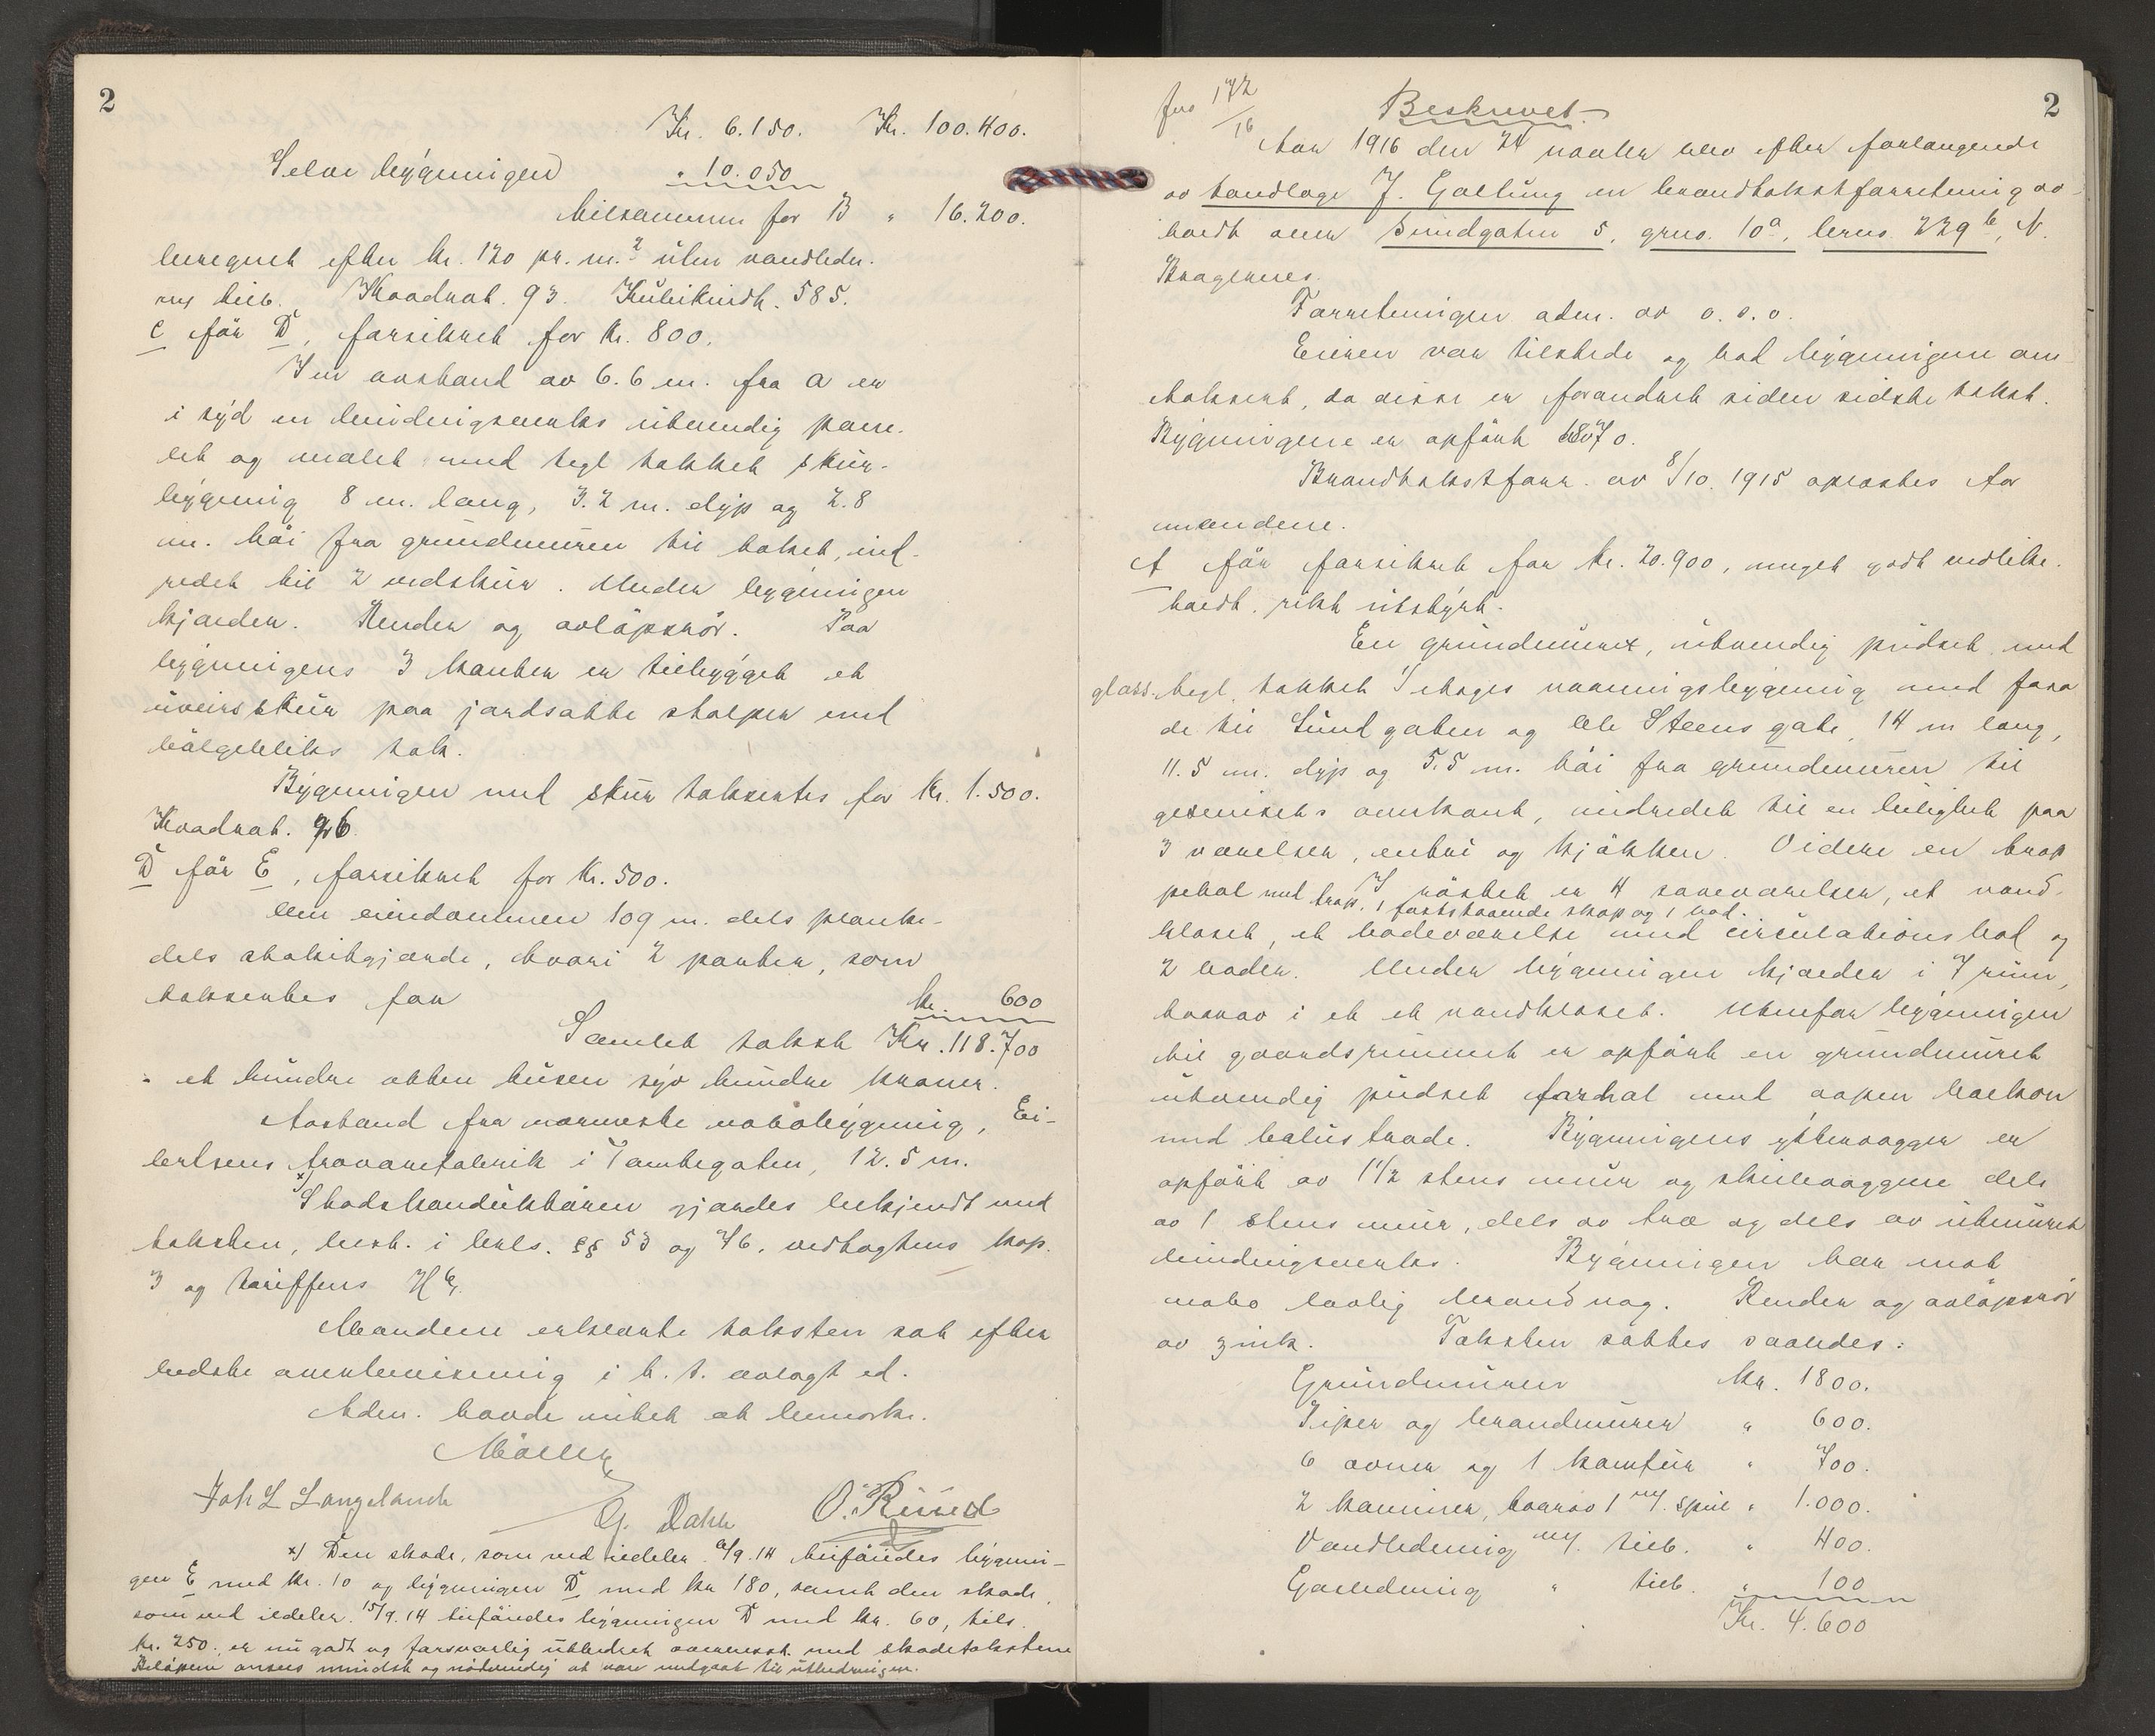 2
Kr. 6.150. Kr. 100.400.
Selve bygningen " 10.050
tilsammen for B " 16.200.
beregnet efter kr. 120 pr. m.² uten vandledn.
m/ tilb. Kvadrat. 93. Kubikindh. 585.
C får D, forsikret for kr. 800.
I en avstand av 6.6 m. fra A er
i syd en bindingsverks utvendig pane-
let og malet med tegl takket skur-
bygning 8 m. lang, 3.2 m. dyp og 2.8
m. høi fra grundmuren til taket, ind-
redet til 2 vedskur. Under bygningen
kjælder. Render og avløpsrør. Paa
bygningens 3 kanter er tilbygget et
uveirsskur paa jordsatte stolper med
bølgebliks tak.
Bygningen med skur taksertes for Kr. 1.500.
Kvadrat. 26.
D får E, forsikret for Kr. 500.
Om eiendommen 109 m. dels planke-
dels stakitgjærde, hvori 2 porter, som
taksertes for kr. 600
Samlet takst Kr. 118.700
- et hundre atten tusen syv hundre kroner.
Avstand fra nærmeste nabobygning, Ei-
lertsens trævarefabrik i Tomtegaten, 12.5 m.
x) Skadskonduktøren gjordes bekjendt med
taksten, best. i brls. §§ 53 og 76, vedtægtens kap.
3 og tariffens H b.
Mændene erklærte taksten sat efter
bedste overbevisning i h. t. avlagt ed.
Adm. havde intet at bemerke.
Møller
Joh L Langeland G. Dahl O. Ruud
x) Den skade, som ved ildebr. 6/9.14 tilføiedes bygnin-
gen E med kr. 10 og bygningen D med kr 180, samt den skade,
som ved ildebr. 15/9.14 tilføiedes bygningen D med kr. 60, tils.
kr. 250. er nu godt og forsvarlig utbedret overensst. med skadetakstene
Beløpene ansees mindst og nødvendig at være medgaat til utbedringen.
2
fra 172/16 Beskrevet
Aar 1916 den 24 blev efter forlangende
av tandlæge J. Galtung en brandtakstforretning av-
holdt over Sundgaten 5, grno. 10a, brno. 229 b, N.
Bragernes.
Forretningen adm. av o. s. o.
Eieren var tilstede og bad bygningen om-
taksert, da disse er forandret siden sidste takst.
Bygningene er opført 1870.
Brandtakstforr. av 8/10. 1915 oplæstes for
mændene.
A får forsikret for kr. 20.900, meget godt vedlike-
holdt, rikt utstyrt.
En grundmuret, utvendig pudset, med
glass. tegl takket 1 etages vaaningsbygning med fasa
de til Sundgaten og Ole Steens gate, 14 m lang,
11.5 m. dyp og 5.5 m. høi fra grundmuren til
gesimsets overkant, indredet til en leilighet paa
3 værelser, entre og kjøkken. Videre en trap
pehal med trap. 1 faststaaende skap og 1 bod. I røstet er 4 soveværelser, et vand-
kloset, et badeværelse med circulationsbad og
2 boder. Under bygningen kjælder i 7 rum,
hvorav i et et vandkloset. Utenfor bygningen
til gaardsrummet er opført en grundmuret
utvendig pudset forhal med aapen balkon
med balustrade. Bygningens yttervægger er
opført av 1 1/2 stens mur og skillevæggene dels
av 1 stens mur, dels av træ og dels av utmuret
bindingsverks. Bygningen har mot
nabo lovlig brandvæg. Render og avløpsrør
av zink. Taksten sattes saaledes:
Grundmuren kr. 1800.
Piper og brandmurer " 600.
6 ovner og 1 komfur " 700.
2 kaminer, hvorav 1 m/. spil " 1.000.
Vandledning m/. tilb. " 400.
Gasledning " tilb. " 100
Kr. 4.600